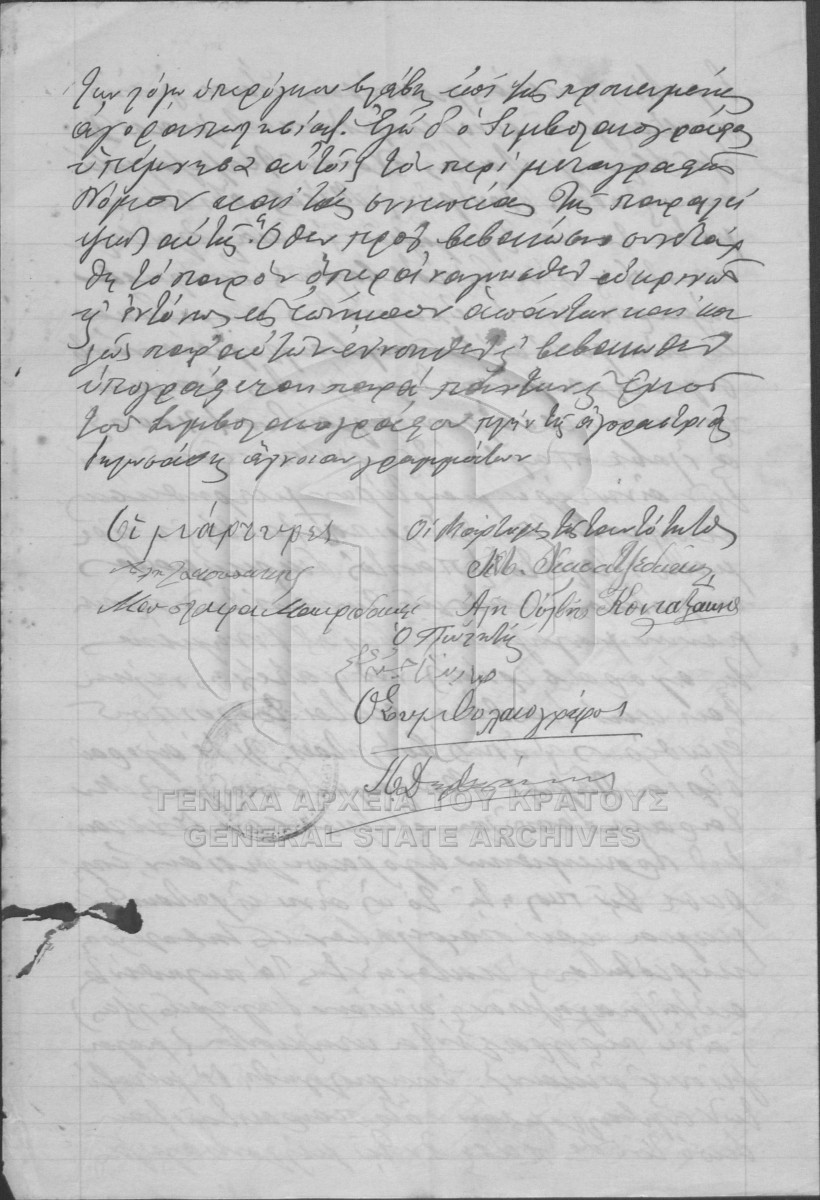 των λόγω υπερόγκου βλάβης επί της προκειμένης
αγοραπωλησίας. Εγώ δ' ο Συμβολαιογράφος
υπέμνησα αυτοίς τον περί μεταγραφής
Νόμον και τας συνεπείας της παραλεί
ψεως αυτής. Όθεν προς βεβαίωσιν συνετάχ
θη το παρόν όπερ αναγνωσθέν ευκρινώς
κ' εντόνως εις επήκοον απάντων και κα
λώς παρ' αυτών εννοηθέν κ' βεβαιωθέν
υπογράφεται παρά πάντων κ' εμού
του Συμβολαιογράφου πλην της αγοραστρίας
δηλωσάσης άγνοιαν γραμμάτων
Οι μάρτυρες Οι Μάρτυρες της ταυτότητος
Μουσταφά Μαυρ
Αλη Κονταξάκης
Ο Πωλητής
Ο Συμβολαιογράφος
ΓΕΝΙΚΑ ΑΡΧΕΙΑ ΤΟΥ ΚΡΑΤΟΥΣ
GENERAL STATE ARCHIVES